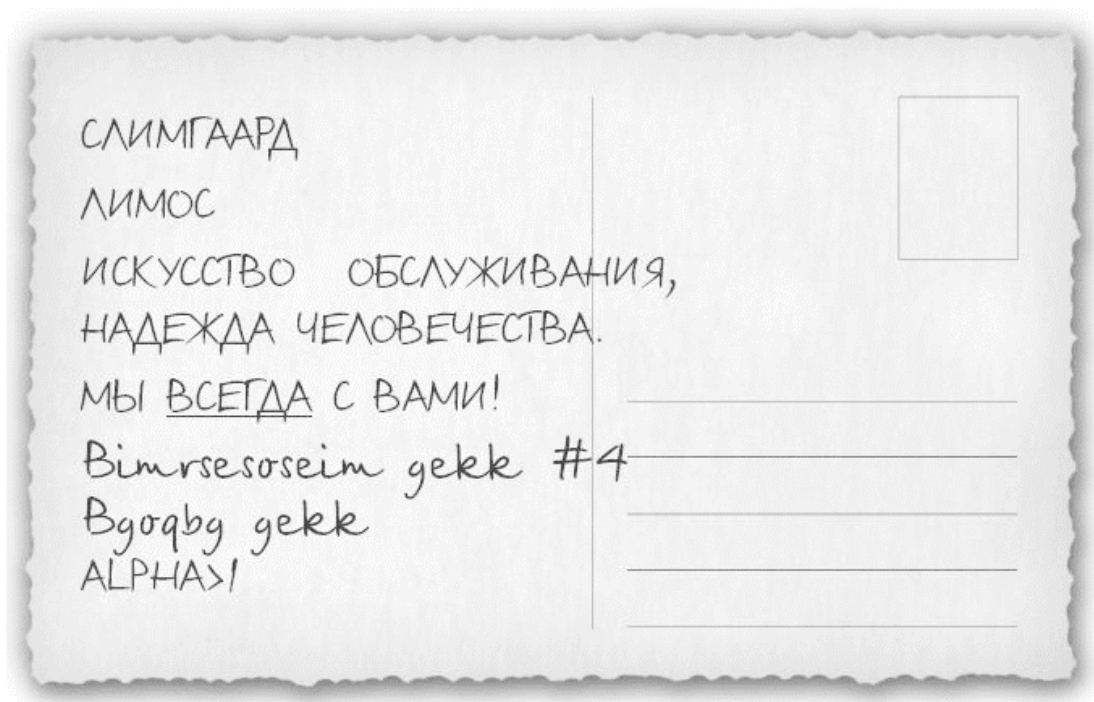 СЛИМГААРД
ЛИМОС
ИСКУССТВО ОБСЛУЖИВАНИЯ,
НАДЕЖДА ЧЕЛОВЕЧЕСТВА.
МЫ ВСЕГДА С ВАМИ!
Bimrsesoseim gekk #4
Bgoqbg gekk
ALPHA>1